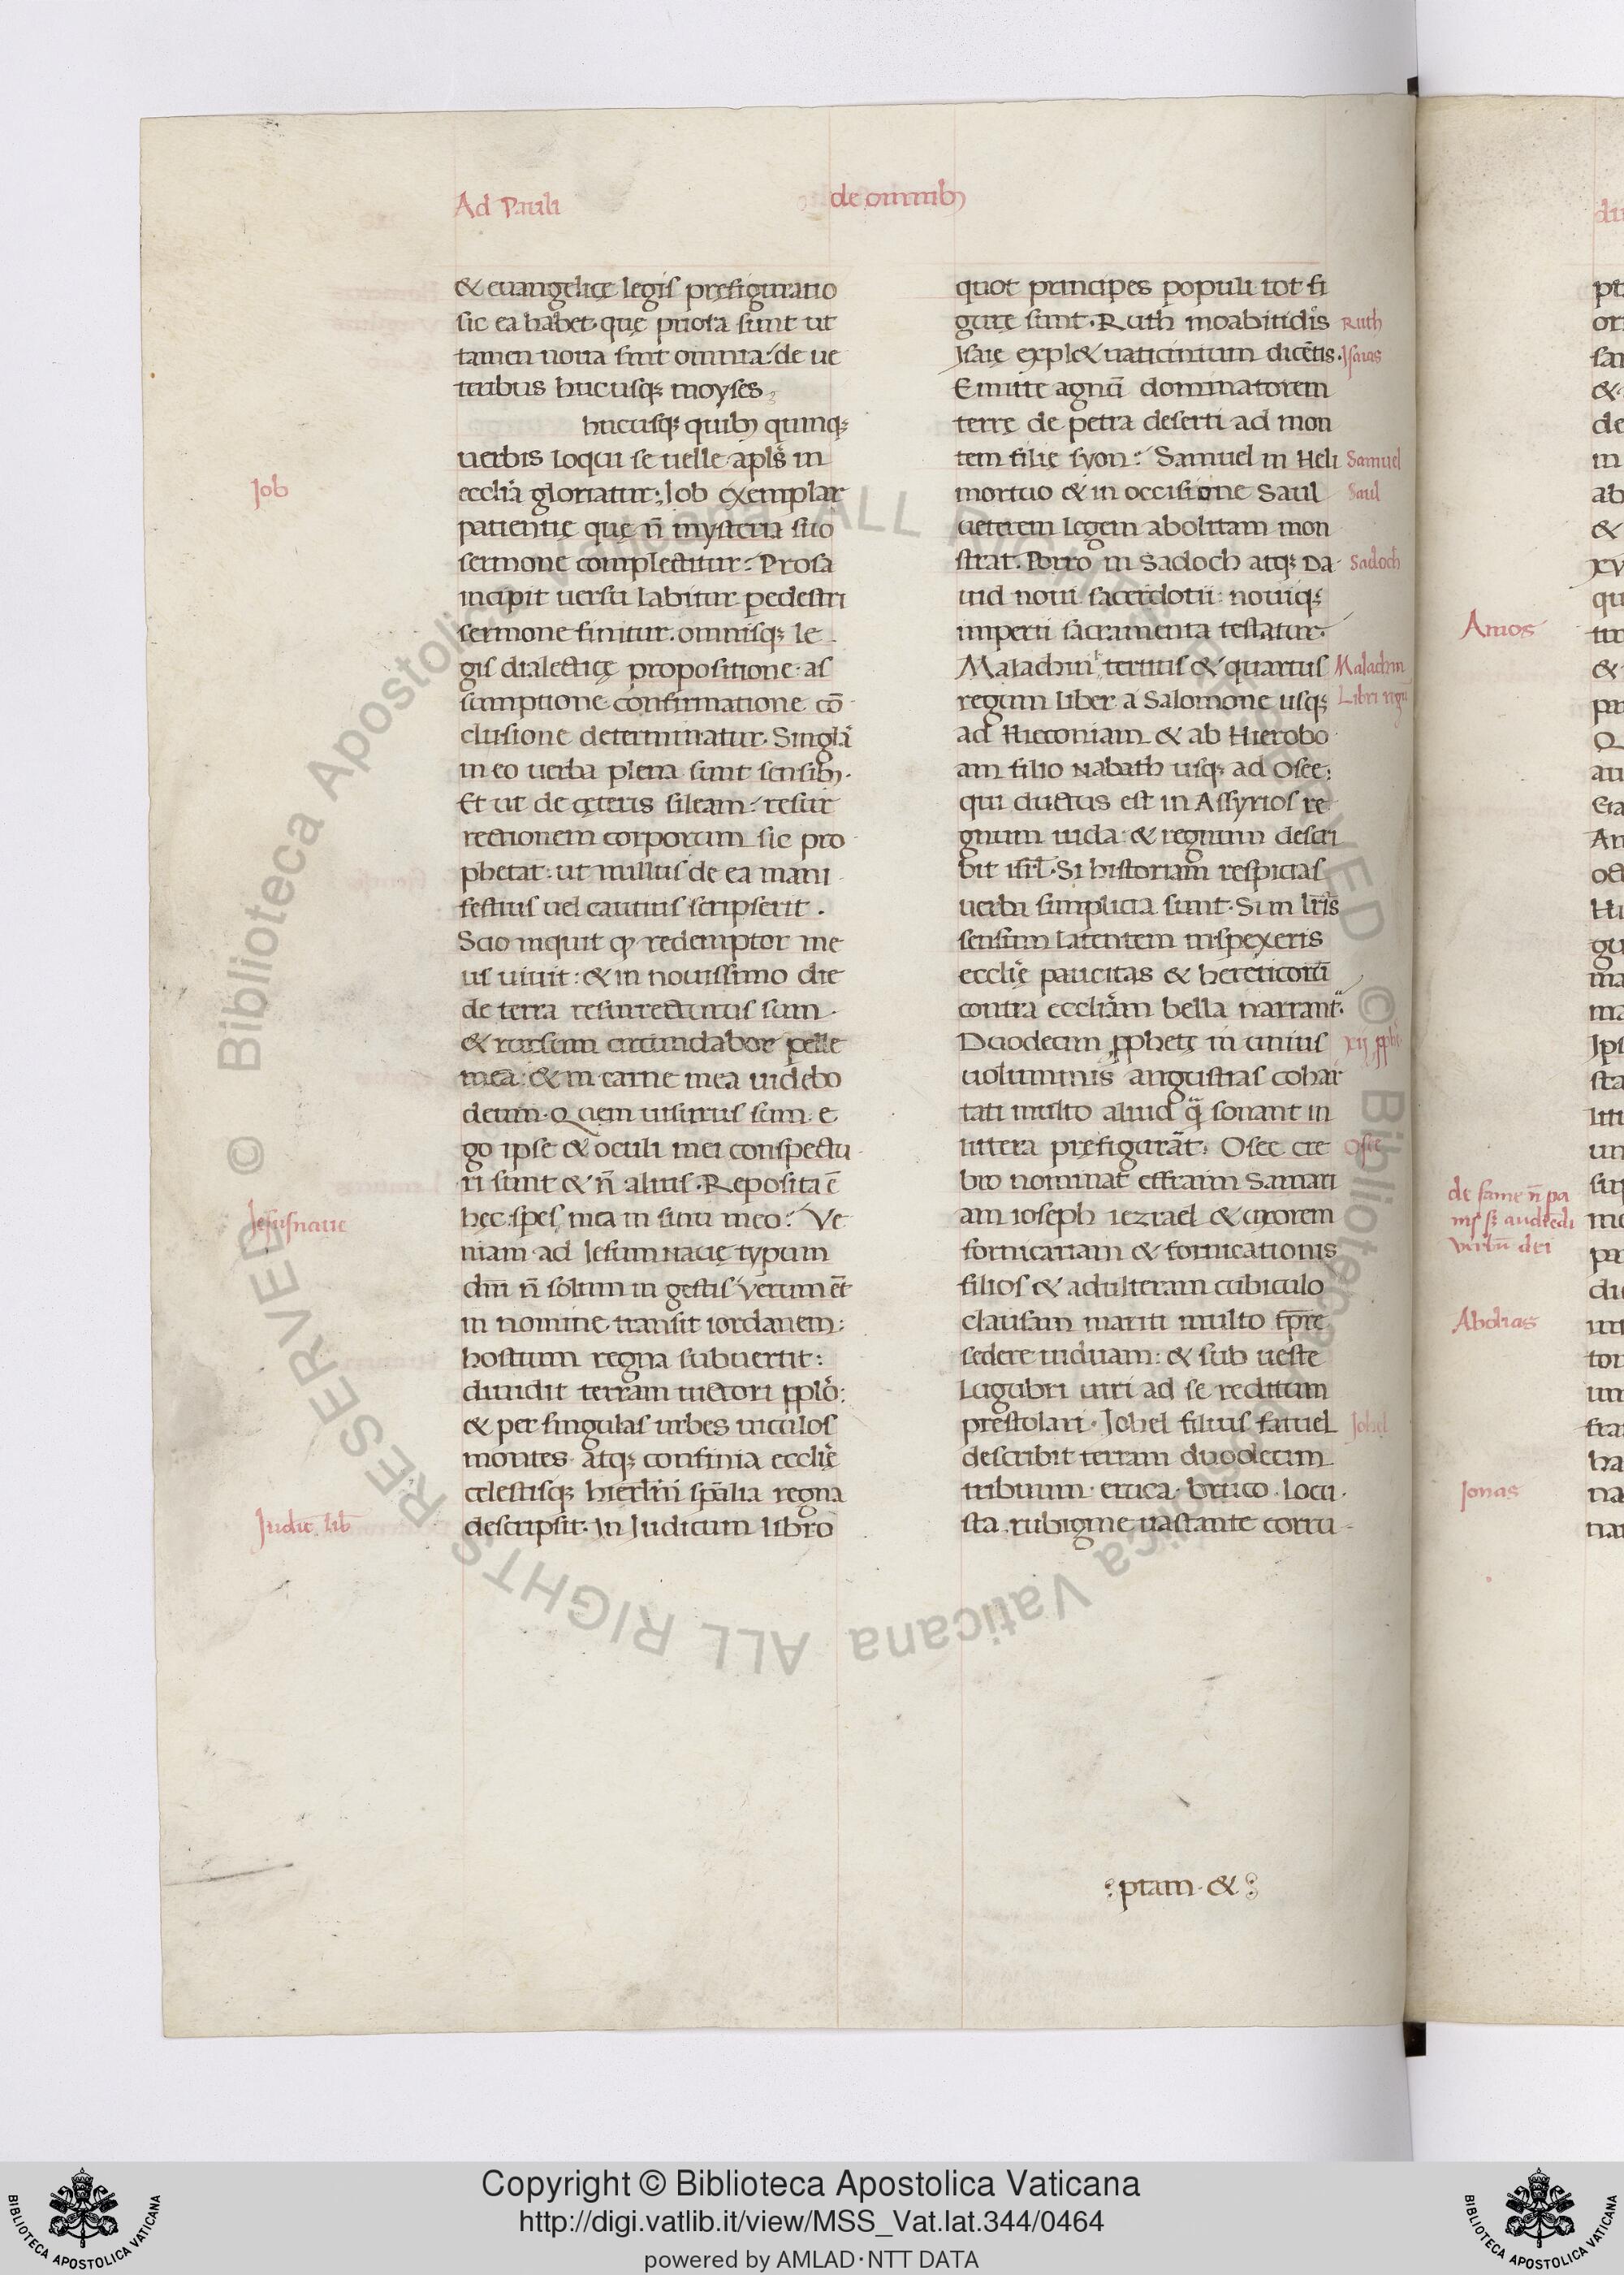 Ad Pauli
de omnib;
& euangelicę legis pręfiguratio
sic ea habet. quę priora sunt ut
tamen noua sint omnia: de ue
teribus hucusq; moyses
hucusq; quib; quinq;
uerbis loqui se uelle apls in
ecclia gloriatur; Iob exemplar
patientię quę n̄ mysteria suo
sermone complectitur: Prosa
incipit uersu labitur pedestri
sermone finitur. omnisq; le
gis dialecticę propositione as
sumptione confirmatione cō
clusione determinatur. Singla
in eo uerba plena sunt sensib;.
Et ut de cęteris sileam: resur
rectionem corporum sic pro
phetat: ut nullus de ea mani
festius uel cautius scripserit.
Scio inquit qp redemptor me
us uiuit: & in nouissimo die
de terra resurrecturus sum.
& rursum circundabor pelle
mea: & in carne mea uidebo
deum. Quem uisurus sum e
go ipse & oculi mei conspectu
ri sunt & n̄ alius. Reposita ē
hęc spes mea in sinu meo: Ve
niam ad Iesum Nauę typum
dni n̄ solum in gestis Verum ēt
in nomine transit iordanem:
hostium regna subuertit:
diuidit terram uictori pplo:
& per singulas urbes uiculos
montes atq; confinia ecclię
celestisq; hierlm spalia regna
descripsit. In Iudicum libro
Job
Jesusnaue
Iudic. lib
quot principes populi tot fi
gurę sunt. Ruth moabitidis
Isaię expl& uaticinium dicētis.
Emitte agnū dominatorem
terrę de petra deserti ad mon
tem filię syon: Samuel in Heli
mortuo & in occisione Saul
ueterem legem abolitam mon
strat. Porro in Sadoch atq; Da
uid noui sacerdotii: nouiq;
imperii sacramenta testatur.
Malachin tertius & quartus
regum liber a Salomone usq;
ad Hieconiam & ab Hierobo
am filio Nabath usq; ad Osee:
qui ductus est in Assyrios re
gnum iuda: & regnum descri
bit isrl. Si historiam respicias
uerba simplicia sunt. Si in lris
sensum latentem inspexeris
ecclię paucitas & hereticorū
contra eccliam bella narrant.
Duodecim pphetę in unius
uoluminis angustias cohar
tati multo aliud q̄ sonant in
littera pręfigurāt. Osee cre
bro nominat effraim Samari
am ioseph iezrael & uxorem
fornicariam & fornicationis
filios & adulteram cubiculo
clausam mariti multo tpre
sedere uiduam: & sub ueste
lugubri uiri ad se reditum
prestolari. Iohel filius fatuel
describit terram duodecim
tribuum. eruca. bruco. locu.
sta. rubigine uastante corru-
Ruth
Isaias
Samuel
Saul
Sadoch
Malachin
Libri regū
xij pph
Osee
Johel
:ptam. &:
Amos
de fame n̄ pa
nis s; audiedi
verbū dei
Abdias
Jonas
© Biblioteca Apostolica Vaticana ALL RIGHTS RESERVED
© Biblioteca Apostolica Vaticana ALL RIGHTS RESERVED
Copyright © Biblioteca Apostolica Vaticana
http://digi.vatlib.it/view/MSS_Vat.lat.344/0464
powered by AMLAD·NTT DATA
BIBLIOTECA APOSTOLICA VATICANA
BIBLIOTECA APOSTOLICA VATICANA